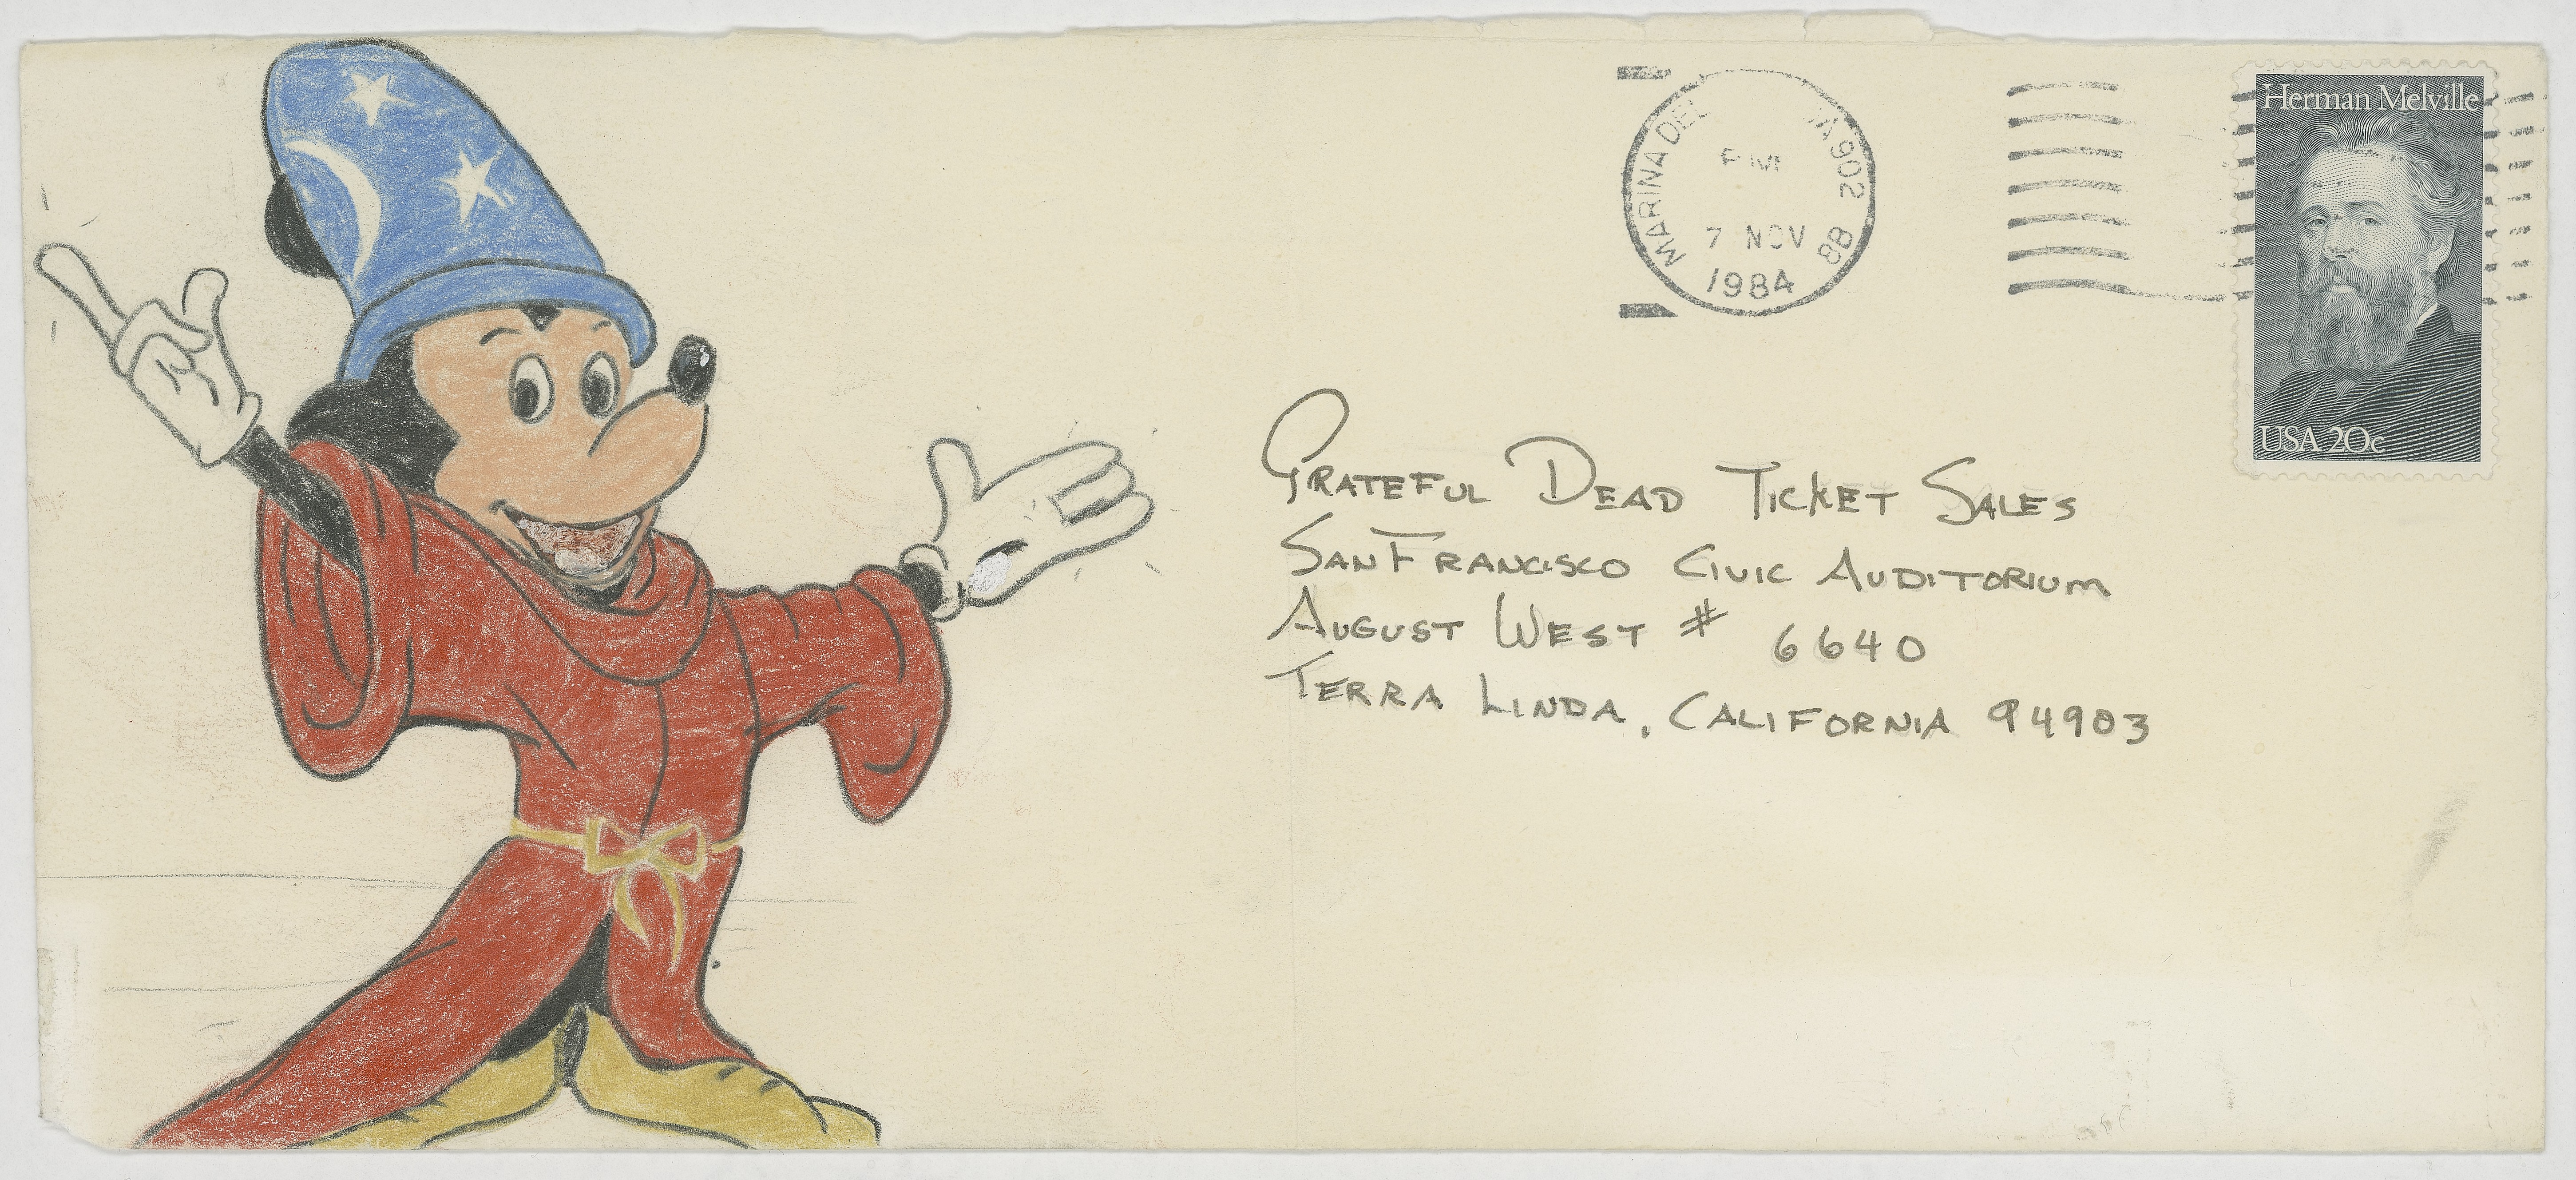 MARINA DEL 902
PM
7 NOV 88
1984
Herman Melville
USA 20c
GRATEFUL DEAD TICKET SALES
SAN FRANCISCO CIVIC AUDITORIUM
AUGUST WEST # 6640
TERRA LINDA, CALIFORNIA 94903